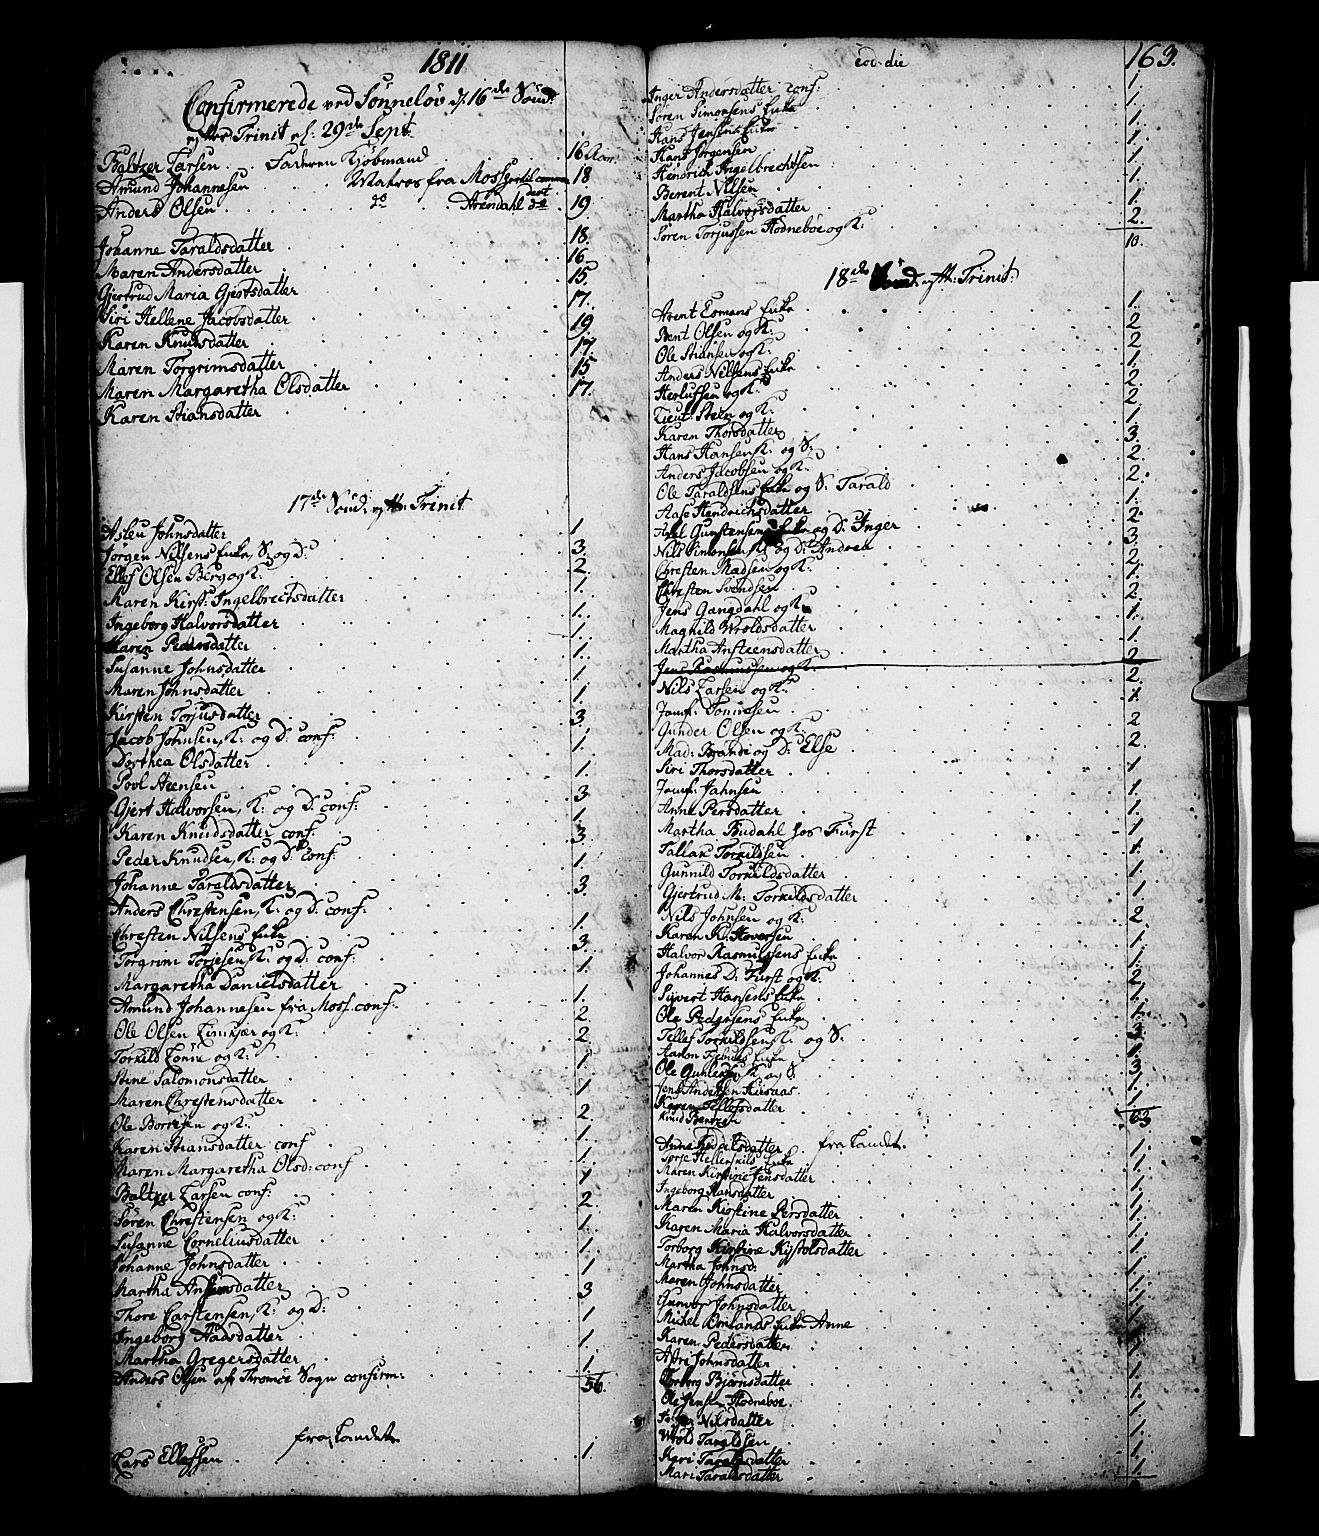 1811
Confirmerede ved Sønneløv d. 16de Sønd:
efter Trinit el: 29de Sept:
Baltzer Larsen Faderen Kjøbmand 16 Aar
Amund Johannesen Matros fra Moss 18
Anders Olsen do Arendahl do 19
Johanne Taraldsdatter 18.
Maren Andersdatter 16
Gjertrud Maria Gjertsdatter 15
Siri Hellene Jacobsdatter 17.
Karen Knudsdatter 19
Maren Torgrimsdatter 17.
Maren Margaretha Olsdatter 15
Karen Stiansdatter 17.
17de Sønd: eft: Trinit
Aslou Johnsdatter 1
Jørgen Nilsens Enke, S: og D: 3.
Ellef Olsen Berg og K: 2.
Maren Kirst: Ingelbrectsdatter 1.
Ingeborg Halvorsdatter 1.
Maren Pedersdatter 1.
Susanne Johnsdatter 1.
Maren Johnsdatter 1
Kirsten Torjusdatter 1.
Jacob Johnsen, K: og D: conf: 3.
Dorthea Olsdatter 1.
Povl Steensen 1.
Gjert Halvorsen, K: og D: conf: 3
Karen Knudsdatter conf. 1.
Peder Knudsen, K: og D: conf: 3
Johanne Taraldsdatter 1.
Anders Christensen, K: og D: conf: 3.
Christen Nilsens Enke 1.
Torgrim Torjesen, K: og D: conf: 3.
Margaretha Danielsdatter 1.
Amund Johannesen fra Moss. conf: 1.
Ole Olsen Limkjær og K: 2.
Torkild Lønne og K: 2
Stine Salomonsdatter 1
Maren Christensdatter 1
Ole Borresen og K: 2
Karen Stiansdatter conf 1
Maren Margaretha Olsd: conf 1.
Baltzer Larsen conf: 1
Søren Christensen og K: 2
Susanne Corneliusdatter 1.
Johanne Johnsdatter 1.
Martha Ansteensdatter 1
Thore Carstensen, K: og D: 3
Ingeborg Aadsdatter 1
Martha Gregersdatter 1
Anders Olsen af Tromøe Sogn confirm: 1
56.
fra Landet
Lars Ellefsen 1.
eod. die 163.
Inger Andersdatter conf: 1
Søren Simonsens Enke 1.
Hans Jensens Enke 1.
Hans Jørgensen 1
Hendrich Ingelbrechtsen 1
Berent Nilsen 1.
Martha Halvorsdatter 1.
Søren Torjussen Hodnebøe og K: 2.
10.
18de Sønd: eft: Trinit:
Arent Esmans Enke 1.
Bent Olsen og K: 2
Ole Stiansen og K: 2
Anders Nilsens Enke 1.
Herlufsen og K: 2
Lieut: Steen og K: 2
Karen Thorsdatter 1
Hans Hansen, K: og S: 3.
Anders Jacobsen og K: 2
Ole Taraldsens Enke og S: Tarald 2
Aase Hendrichsdatter 1.
Axel Gunstensens Enke og D: Inger 2
Nils Simonsen K: og D: Andrea 3.
Christen Madsen og K: 2
Christen Svendsen 1.
Jens Gangdahl og K: 2
Magnild Wroldsdatter 1.
Martha Ansteensdatter 1
Jens Rasmussen og K: 2
Nils Larsen og K: 2
Jomf: Tønnesen 1
Gunder Olsen og K: 2
Mad: Brande og D: Else 2.
Siri Thorsdatter 1
Jomf: Jahnsen 1
Anne Persdatter 1
Martha Budahl hos Fürst 1
Tallak Torkildsen 1.
Gunnild Torkildsdatter 1
Gjertrud M: Torkildsdatter 1
Nils Johnsen og K: 2
Karen K: Hoversen 1
Halvor Rasmussens Enke 1
Johannes D: Fürst og K: 2
Sivert Hansens Enke 1
Ole Pedersens Enke 1
Tellef Torkildsen K: og S: 3
Aaron Enke 1
Ole Gundersen K og S. 3
Jens Andersen 1.
Karen Tellefsdatter 1
Knud Berntsen
63
Anne datter fra Landet 1
Torje Enke 1
Maren Kirstine Jensdatter 1
Ingeborg Hansdatter 1
Maren Kirstine Persdatter 1
Karen Maria Halvorsdatter 1
Torborg Kirstine Kystolsdatter 1
Martha Johnsd: 1
Maren Johnsdatter 1
Gunvor Johnsdatter 1
Michel Enke Anne 1
Karen Pedersdatter 1
Johnsdatter 1
Torborg Bjørnsdatter 1
Ole Jensen Hodnebøe. 1
Nilsdatter 1
Wrold Taraldsen 1
Kari Taraldsdatter 1
Mari Taraldsdatter 1